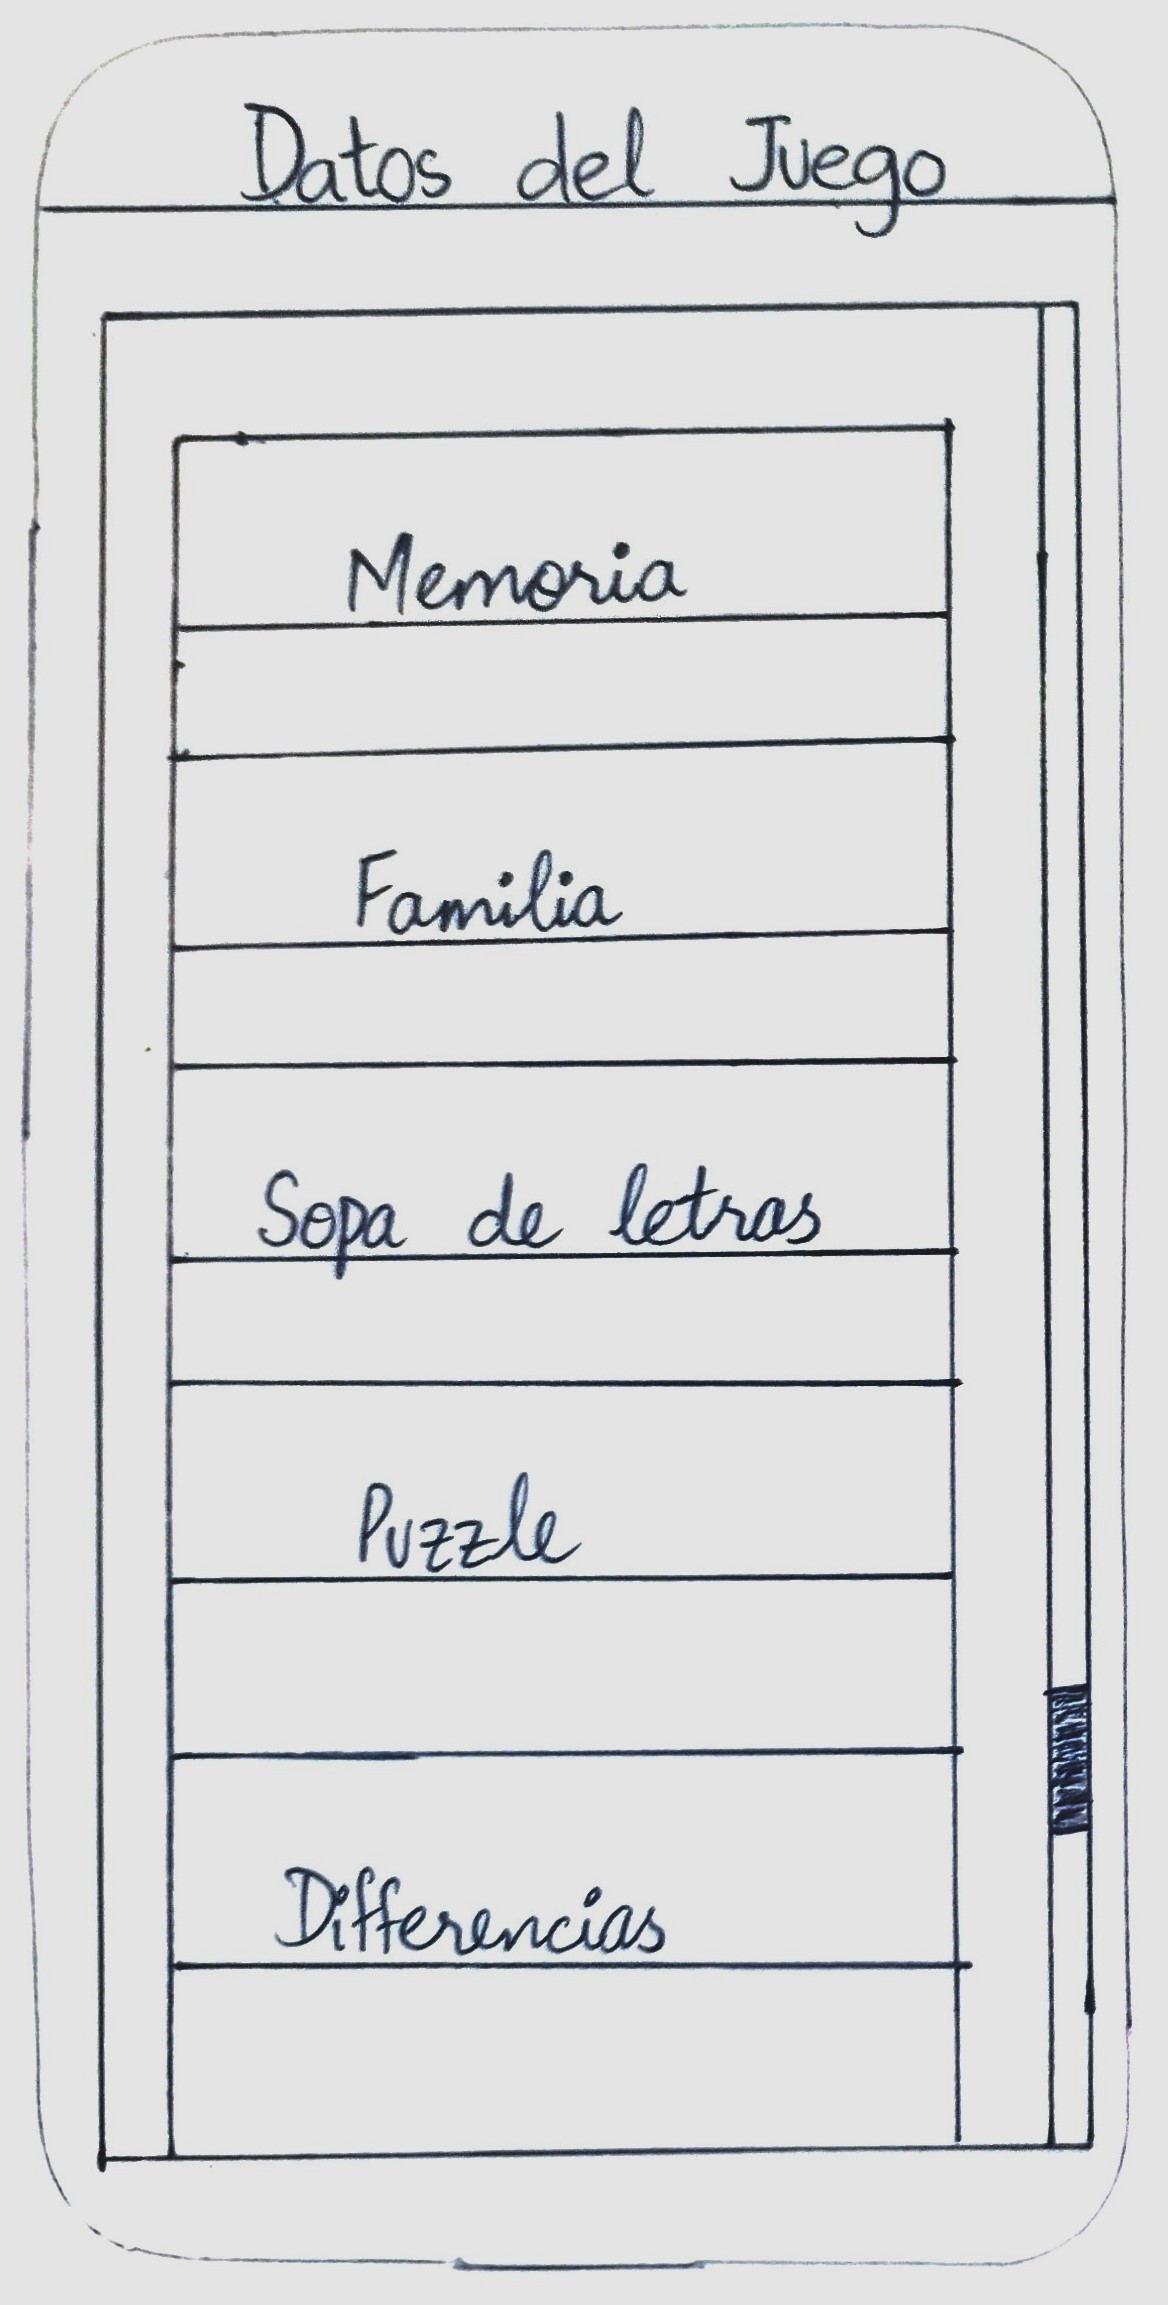 Datos del Juego
Memoria
Familia
Sopa de letras
Puzzle
Differencias